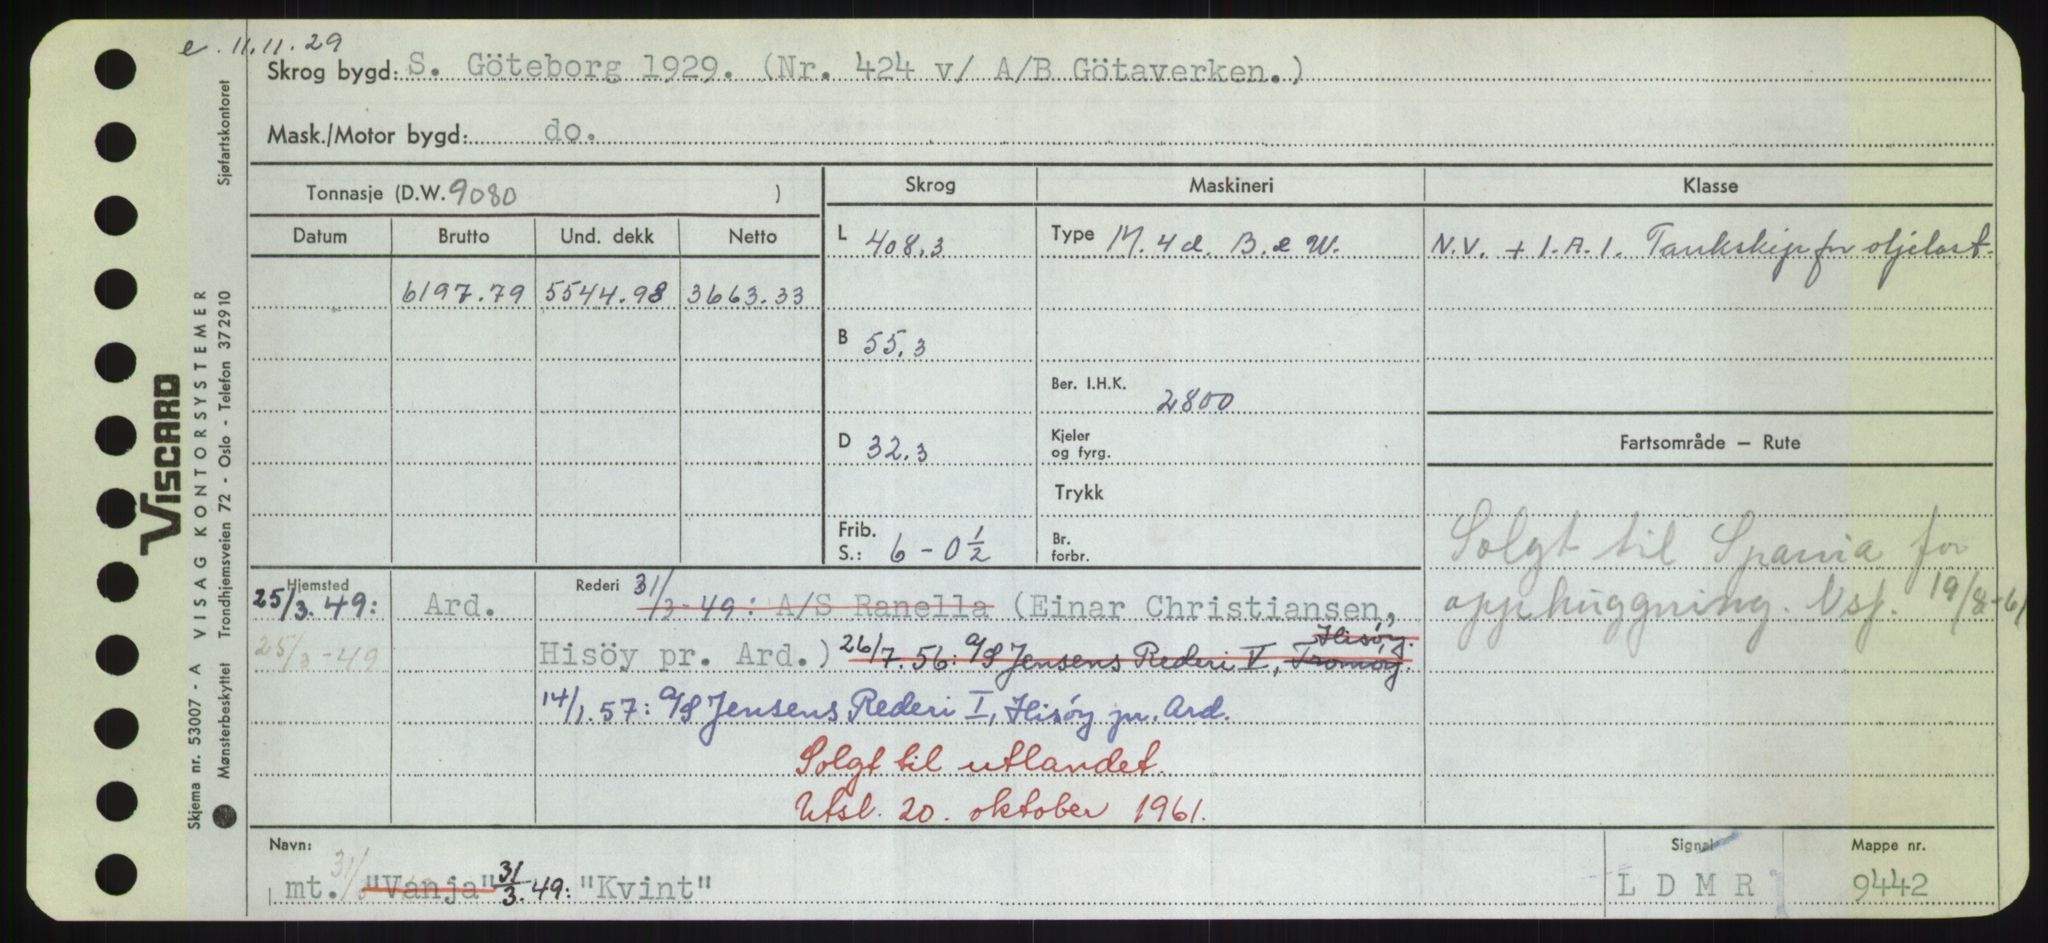 e. 11.11.29
Skrog bygd: S. Göteborg 1929. (Nr. 424 v/ A/B Götaverken.)
Mask./Motor bygd: do.
Tonnasje (D.W. 9080 )
Skrog Maskineri Klasse
Datum Brutto Und. dekk Netto
L 408,3 Type M. 4 d. B. & W. N.V. + 1. A. 1. Tankskip for oljelast.
6197.79 5544.98 3663.33
B 55,3
Ber. I.H.K. 2800
D 32,3 Kjeler og fyrg. Fartsområde — Rute
Trykk
Frib. S.: 6 - 0 1/2 Br. forbr.
Solgt til Spania for
opphuggning. Nsf. 19/8-61
Hjemsted Rederi
25/3.49: Ard. 31/3-49: A/S Ranella (Einar Christiansen,
25/3-49 Hisöy pr. Ard.) 26/7.56: A/S Jensens Rederi V, Tromøy. Hisøy.
14/1.57: A/S Jensens Rederi I, Hisøy pr. Ard.
Solgt til utlandet.
Utsl. 20. oktober 1961.
Navn: Signal Mappe nr.
mt. 31/3 "Vanja" 31/3.49: "Kvint" L D M R 9442
VISCARD
Skjema nr. 53007 - A VISAG KONTORSYSTEMER
Mønsterbeskyttet Trondhjemsveien 72 - Oslo - Telefon 372910 Sjøfartskontoret